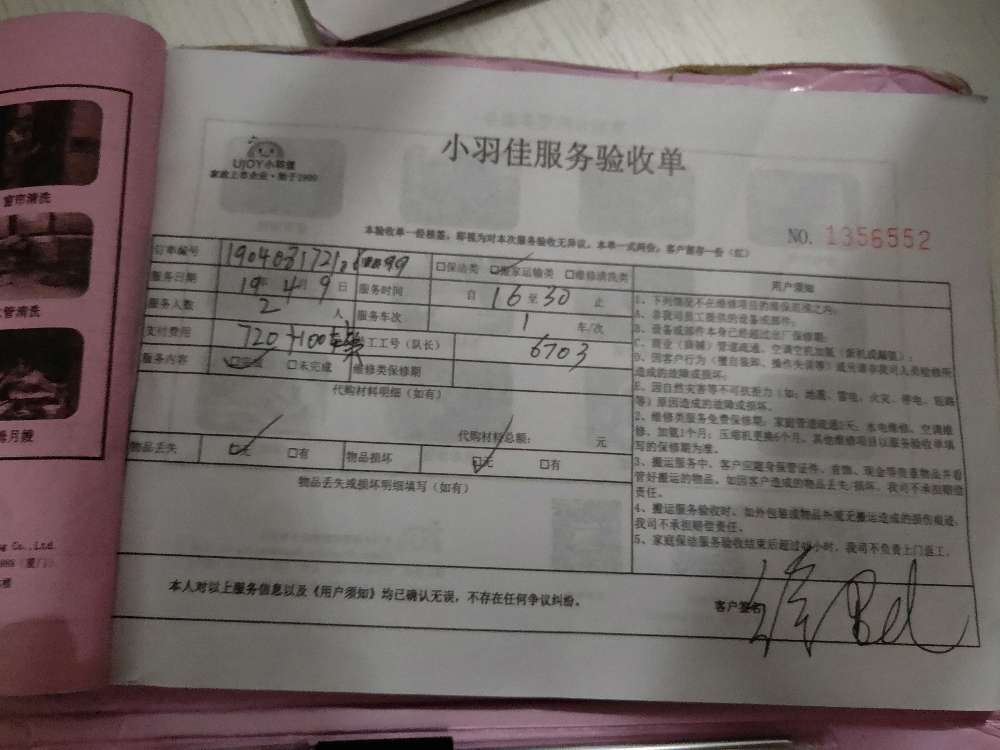 窗帘清洗
管清洗
月嫂
UJOY小羽佳
家政上市企业·始于1999
小羽佳服务验收单
本验收单一经核签,即视为对本次服务验收无异议。本单一式两份,客户留存一份(红)
NO. 1356552
订单编号 □保洁类 □搬家运输类 □维修清洗类 用户须知
服务日期 19年 4月 9日 服务时间 自 16 至 30 止
服务人数 2 人 服务车次 1 车/次
支付费用 720+100 工工号(队长) 6703
服务内容 □完成 □未完成 维修类保修期
代购材料明细(如有)
代购材料总额: 元
物品丢失 □无 □有 物品损坏 □无 □有
物品丢失或损坏明细填写(如有)
1、下列情况不在维修项目的维保范围之内:
A、非我司员工提供的设备或部件;
B、设备或部件本身已经超过出厂保修期;
C、商业(店铺)管道疏通、空调空机加氨(新机或漏氨);
D、因客户行为(擅自装坏、操作失误等)或另请非我司人员检修所
造成的故障或损坏。
E、因自然灾害等不可抗拒力(如:地震、雷电、火灾、停电、短路
等)原因造成的故障或损坏。
2、维修类服务免费保修期:家庭管道疏通7天;水电维修、空调维
修、加氨1个月;压缩机更换6个月。其他维修项目以服务验收单填
写的保修期为准。
3、搬运服务中,客户应随身保管证件、首饰、现金等贵重物品并看
管好搬运的物品。如因客户造成的物品丢失/损坏,我司不承担赔偿
责任。
4、搬运服务验收时,如外包装或物品外观无搬运造成的损伤痕迹,
我司不承担赔偿责任。
5、家庭保洁服务验收结束后超过48小时,我司不负责上门返工。
本人对以上服务信息以及《用户须知》均已确认无误,不存在任何争议纠纷。
客户签名
Co.,Ltd.